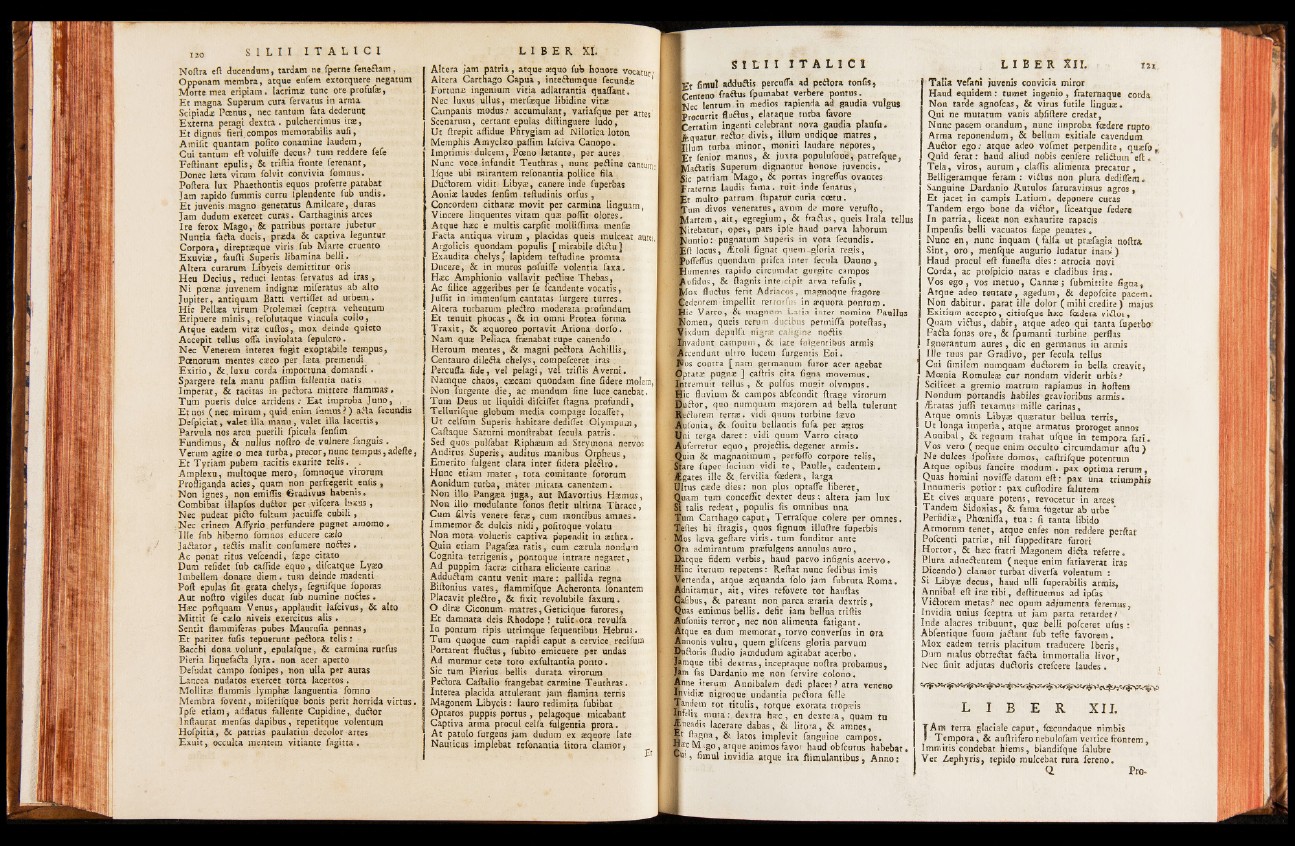 120 SILII ITALICI
Noſtra eſt ducendum, tardam ne ſperne ſenectam,
Opponam membra, atque enſem extorquere negatum
Morte mea eripiam. lacrimæ tunc ore profuſæ,
Et magna Superum cura ſervatus in arma
Scipiadæ Pœnus, nec tantum fata dederunt
Externa peragi dextra. pulcherrimus iræ,
Et dignus fieri compos memorabilis auſi,
Amiſit quantam poſito conamine laudem,
Cui tantum eſt voluiſſe decus? tum reddere ſeſe
Feſtinant epulis, & triſtia fronte ſerenant,
Donec læta virum ſolvit convivia ſomnus.
Poſtera lux Phaethontis equos proferre parabat
Jam rapido ſummis curru ſplendente ſub undis.
Et juvenis magno generatus Amilcare, duras
Jam dudum exercet curas. Carthaginis arces
Ire ferox Mago, & patribus portare jubetur
Nuntia facta ducis, præda & captiva leguntur
Corpora, direptæque viris ſub Marte cruento
Exuviæ, fauſti Superis libamina belli.
Altera curarum Libycis demittitur oris
Heu Decius, reduci lentas ſervatus ad iras,
Ni pœnæ juvenem indignæ miſeratus ab alto
Jupiter, antiquam Batti vertiſſet ad urbem.
Hic Pellæa virum Ptolemæi ſceptra vehentum
Eripuere minis, reſolutaque vincula collo,
Atque eadem vitæ cuſtos, mox deinde quieto
Accepit tellus oſſa inviolata ſepulcro.
Nec Venerem interea fugit exoptabile tempus,
Pœnorum mentes cæco per læta premendi
Exitio, & luxu corda importuna domandi.
Spargere tela manu paſſim fallentia natis
Imperat, & tacitas in pectora mittere flammas.
Tum pueris dulce arridens: Eat improba Juno,
Et nos (nec mirum, quid enim ſumus?) acta ſecundis
Deſpiciat, valet illa manu, valet illa lacertis,
Parvula nos arcu puerili ſpicula ſenſim
Fundimus, & nullus noſtro de vulnere ſanguis.
Verum agite o mea turba, precor, nunc tempus, adeſte,
Et Tyriam pubem tacitis exurite telis.
Amplexu, multoque mero, ſomnoque virorum
Profliganda acies, quam non perfregerit enſis,
Non ignes, non emiſſis Gradivus habenis.
Combibat illapſos ductor per viſcera luxus,
Nec pudeat picto fultum jacuiſſe cubili,
Nec crinem Aſſyrio perfundere pugnet amomo.
Ille ſub hiberno ſomnos educere cælo
Jactator, tectis malit conſumere noctes.
Ac ponat ritus veſcendi, ſæpe citato
Dum reſidet ſub caſſide equo, diſcatque Lyæo
Imbellem donare diem. tum deinde madenti
Poſt epulas ſit grata chelys, ſegniſque ſopores
Aut noſtro vigiles ducat ſub numine noctes.
Hæc poſtquam Venus, applaudit laſcivus, & alto
Mittit ſe cælo niveis exercitus alis.
Sentit flammiferas pubes Mauruſia pennas,
Et pariter fuſis tepuerunt pectora telis:
Bacchi dona volunt, epulaſque, & carmina rurſus
Pieria liquefacta lyra. non acer aperto
Deſudat campo ſonipes, non ulla per auras
Lancea nudatos exercet torta lacertos.
Mollitæ flammis lymphæ languentia ſomno
Membra fovent, miſeriſque bonis perit horrida virtus.
Ipſe etiam, afflatus fallente Cupidine, ductor
Inſtaurat menſas dapibus, repetitque volentum
Hoſpitia, & patrias paulatim decolor artes
Exuit, occulta mentem vitiante ſagitta.
LIBER XI.
Altera jam patria, atque æquo ſub honore vocatur,
Altera Carthago Capua, intectumque ſecundæ
Fortunæ ingenium vitia adlatrantia quaſſant.
Nec luxus ullus, merſæque libidine vitæ
Campanis modus: accumulant, variaſque per artes
Scenarum, certant epulas diſtinguere ludo,
Ut ſtrepit aſſidue Phrygiam ad Nilotica loton
Memphis Amyclæo paſſim laſciva Canopo.
Imprimis dulcem, Pœno lætante, per aures
Nunc voce infundit Teuthras, nunc pectine cantum:
Iſque ubi mirantem reſonantia pollice fila
Ductorem vidit Libyæ, canere inde ſuperbas
Aoniæ laudes ſenſim teſtudinis orſus,
Concordem citharæ movit per carmina linguam,
Vincere linquentes vitam quæ poſſit olores.
Atque hæc e multis carpſit molliſſima menſæ
Facta antiqua virum, placidas queis mulceat aures,
Argolicis quondam populis [mirabile dictu]
Exaudita chelys, lapidem teſtudine promta
Ducere, & in muros poſuiſſe volentia ſaxa.
Hæc Amphionio vallavit pectine Thebas,
Ac ſilice aggeribus per ſe ſcandente vocatis,
Juſſit in immenſum cantatas ſurgere turres.
Altera turbatum plectro moderata profundum
Et tenuit phocas, & in omni Protea forma
Traxit, & æquoreo portavit Ariona dorſo.
Nam quæ Peliaca frænabat rupe canendo
Heroum mentes, & magni pectora Achillis,
Centauro dilecta chelys, compeſceret iras
Percuſſa fide, vel pelagi, vel triſtis Averni.
Namque chaos, cæcam quondam ſine ſidere molem,
Non ſurgente die, ac mundum ſine luce canebat.
Tum Deus ut liquidi diſciſſet ſtagna profundi,
Telluriſque globum media compage locaſſet,
Ut celſum Superis habitare dediſſet Olympum,
Caſtaque Saturni monſtrabat ſecula patris.
Sed quos pulſabat Riphæum ad Strymona nervos
Auditus Superis, auditus manibus Orpheus,
Emerito fulgent clara inter ſidera plectro.
Hunc etiam mater, tota comitante ſororum
Aonidum turba, mater mirata canentem.
Non illo Pangæa juga, aut Mavortius Hæmus,
Non illo modulante ſonos ſtetit ultima Thrace,
Cum ſilvis venere feræ, cum montibus amnes.
Immemor & dulcis nidi, poſitoque volatu
Non mota volucris captiva pependit in æthra.
Quin etiam Pagaſæa ratis, cum cærula nondum
Cognita terrigenis, pontoque intrare negaret,
Ad puppim ſacræ cithara eliciente carinæ
Adductum cantu venit mare: pallida regna
Biſtonius vates, flammiſque Acheronta ſonantem
Placavit plectro, & fixit revolubile ſaxum.
O diræ Ciconum matres, Geticique furores,
Et damnata deis Rhodope! tulit ora revulſa
In pontum ripis utrimque ſequentibus Hebrus.
Tum quoque cum rapidi caput a cervice reciſum
Portarent fluctus, ſubito emicuere per undas
Ad murmur cete toto exſultantia ponto.
Sic tum Pierius bellis durata virorum
Pectora Caſtalio frangebat carmine Teuthras.
Interea placida attulerant jam flamina terris
Magonem Libycis: lauro redimita ſubibat
Optatos puppis portus, pelagoque micabant
Captiva arma procul celſa fulgentia prora.
At patulo ſurgens jam dudum ex æquore late
Nauticus implebat reſonantia litora clamor,
Et
SILII ITALICI
Et ſimul adductis percuſſa ad pectora tonſis,
Centeno fractus ſpumabat verbere pontus.
Nec lentum in medios rapienda ad gaudia vulgus
Procurrit fluctus, elataque turba favore
Certatim ingenti celebrant nova gaudia plauſu.
Æquatur rector divis, illum undique matres,
Illum turba minor, moniti laudare nepotes,
Et ſenior manus, & juxta populuſque, patreſque,
Mactatis Superum dignantur honore juvencis.
Sic patriam Mago, & portas ingreſſus ovantes
Fraternæ laudis fama. ruit inde ſenatus,
Et multo patrum ſtipatur curia cœtu.
Tum divos veneratus, avum de more vetuſto,
Martem, ait, egregium, & fractas, queis Itala tellus
Nitebatur, opes, pars ipſe haud parva laborum
Nuntio: pugnatum Superis in vota ſecundis.
Eſt locus, Ætoli ſignat quem gloria regis,
Poſſeſſus quondam priſca inter ſecula Dauno,
Humentes rapido circumdat gurgite campos
Aufidus, & ſtagnis intercipit arva refuſis,
Mox fluctus ferit Adriacos, magnoque fragore
Cedentem impellit retrorſus in æquora pontum.
Hic Varro, & magnum Latia inter nomina Paullus
Nomen, queis rerum ducibus permiſſa poteſtas,
Vixdum depulſa nigræ caligine noctis
Invadunt campum, & late fulgentibus armis
Accendunt ultro lucem ſurgentis Eoi.
Nos contra [nam germanum furor acer agebat
Optatæ pugnæ] caſtris cita ſigna movemus.
Intremuit tellus, & pulſus mugit olympus.
Hic fluvium & campos abſcondit ſtrage virorum
Ductor, quo numquam majorem ad bella tulerunt
Rectorem terræ. vidi quum turbine ſævo
Auſonia, & ſonitu bellantis fuſa per agros
Uni terga daret: vidi quum Varro citato
Auferretur equo, projectis degener armis.
Quin & magnanimum, perfoſſo corpore telis,
Stare ſuper ſocium vidi te, Paulle, cadentem.
Ægates ille & ſervilia fœdera, larga
Ultus cæde dies: non plus optaſſe liberet,
Quam tum conceſſit dexter deus; altera jam lux
Si talis redeat, populis ſis omnibus una
Tum Carthago caput, Terraſque colere per omnes.
Teſtes hi ſtragis, quos ſignum illuſtre ſuperbis
Mos læva geſtare viris. tum funditor ante
Ora admirantum præfulgens annulus auro,
Datque fidem verbis, haud parvo inſignis acervo.
Hinc iterum repetens: Reſtat nunc ſedibus imis
Vertenda, atque æquanda ſolo jam ſubruta Roma.
Adnitamur, ait, vires refovete tot hauſtas
Caſibus, & pareant non parca æraria dextris,
Quas emimus bellis. deſit jam bellua triſtis
Auſoniis terror, nec non alimenta fatigant.
Atque ea dum memorat, torvo converſus in ora
Annonis vultu, quem gliſcens gloria parvum
Ductoris ſtudio jamdudum agitabat acerbo.
Jamque tibi dextras, inceptaque noſtra probamus,
Jam fas Dardanio me non ſervire colono.
Anne iterum Annibalem dedi placet? atra veneno
Invidiæ nigroque undantia pectora felle
Tandem tot titulis, totque exorata tropæis
Infelix muta: dextra hæc, en dextera, quam tu
Æneadis lacerare dabas, & litora, & amnes,
Et ſtagna, & latos implevit ſanguine campos.
Hæc Mago, atque animos favor haud obſcurus habebat.
Cui, ſimul invidia atque ira ſtimulantibus, Anno:
LIBER XII. 121
Talia veſani juvenis convicia miror
Haud equidem: tumet ingenio, fraternaque corda
Non tarde agnoſcas, & virus futile linguæ.
Qui ne mutatum vanis abſiſtere credat,
Nunc pacem orandum, nunc improba fœdere rupto
Arma reponendum, & bellum exitiale cavendum
Auctor ego: atque adeo voſmet perpendite, quæſo,
Quid ferat: haud aliud nobis cenſere relictum eſt.
Tela, viros, aurum, claſſis alimenta precatur,
Belligeramque feram: victus non plura dediſſem.
Sanguine Dardanio Rutulos ſaturavimus agros,
Et jacet in campis Latium. deponere curas
Tandem ergo bone da victor, liceatque ſedere
In patria, liceat non exhaurire rapacis
Impenſis belli vacuatos ſæpe penates.
Nunc en, nunc inquam (falſa ut præſagia noſtra
Sint, oro, menſque augurio ludatur inani)
Haud procul eſt funeſta dies: atrocia novi
Corda, ac proſpicio natas e cladibus iras.
Vos ego, vos metuo, Cannæ; ſubmittite ſigna,
Atque adeo tentate, agedum, & depoſcite pacem.
Non dabitur. parat ille dolor (mihi credite) majus
Exitium accepto, citiuſque hæc fœdera victor,
Quam victus, dabit, atque adeo qui tanta ſuperbo
Facta ſonas ore, & ſpumanti turbine perflas
Ignorantum aures, dic en germanus in armis
Ille tuus par Gradivo, per ſecula tellus
Cui ſimilem numquam ductorem in bella creavit,
Mœnia Romuleæ cur nondum viderit urbis?
Scilicet a gremio matrum rapiamus in hoſtem
Nondum portandis habiles gravioribus armis.
Æratas juſſi texamus mille carinas,
Atque omnis Libyæ quæratur bellua terris,
Ut longa imperia, atque armatus proroget annos
Annibal, & regnum trahat uſque in tempora fati.
Vos vero (neque enim occulto circumdamur aſtu)
Ne dulces ſpoliate domos, caſtriſque potentum
Atque opibus ſancite modum. pax optima rerum,
Quas homini noviſſe datum eſt: pax una triumphis
Innumeris potior: pax cuſtodire ſalutem
Et cives æquare potens, revocetur in arces
Tandem Sidonias, & fama fugetur ab urbe
Perfidiæ, Phœniſſa, tua: ſi tanta libido
Armorum tenet, atque enſes non reddere perſtat
Poſcenti patriæ, nil ſuppeditare furori
Hortor, & hæc fratri Magonem dicta referre.
Plura adnectentem (neque enim ſatiaverat iras
Dicendo) clamor turbat diverſa volentum:
Si Libyæ decus, haud ulli ſuperabilis armis,
Annibal eſt iræ tibi, deſtituemus ad ipſas
Victorem metas? nec opum adjumenta feremus,
Invidia unius ſceptra ut jam parta retardet?
Inde alacres tribuunt, quæ belli poſceret uſus:
Abſentique ſuum jactant ſub teſte favorem.
Mox eadem terris placitum traducere Iberis,
Dum malus obtrectat facta immortalia livor,
Nec ſinit adjutas ductoris creſcere laudes.
LIBER XII.
JAm terra glaciale caput, fœcundaque nimbis
Tempora, & auſtrifero nebuloſam vertice frontem,
Immitis condebat hiems, blandiſque ſalubre
Ver Zephyris, tepido mulcebat rura ſereno.
Q Pro-